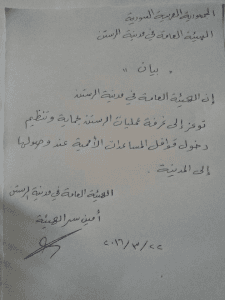 الجمهورية العربية السورية
الهيئة العامة في مدينة الرستن
" بيان "
إن الهيئة العامة في مدينة الرستن
توعز إلى غرفة عمليات الرستن بحماية وتنظيم
دخول قوافل المساعدات الأممية عند وصولها
إلى المدينة .
الهيئة العامة في مدينة الرستن
أمين سر الهيئة
٢٠١٦/٣/٢٢